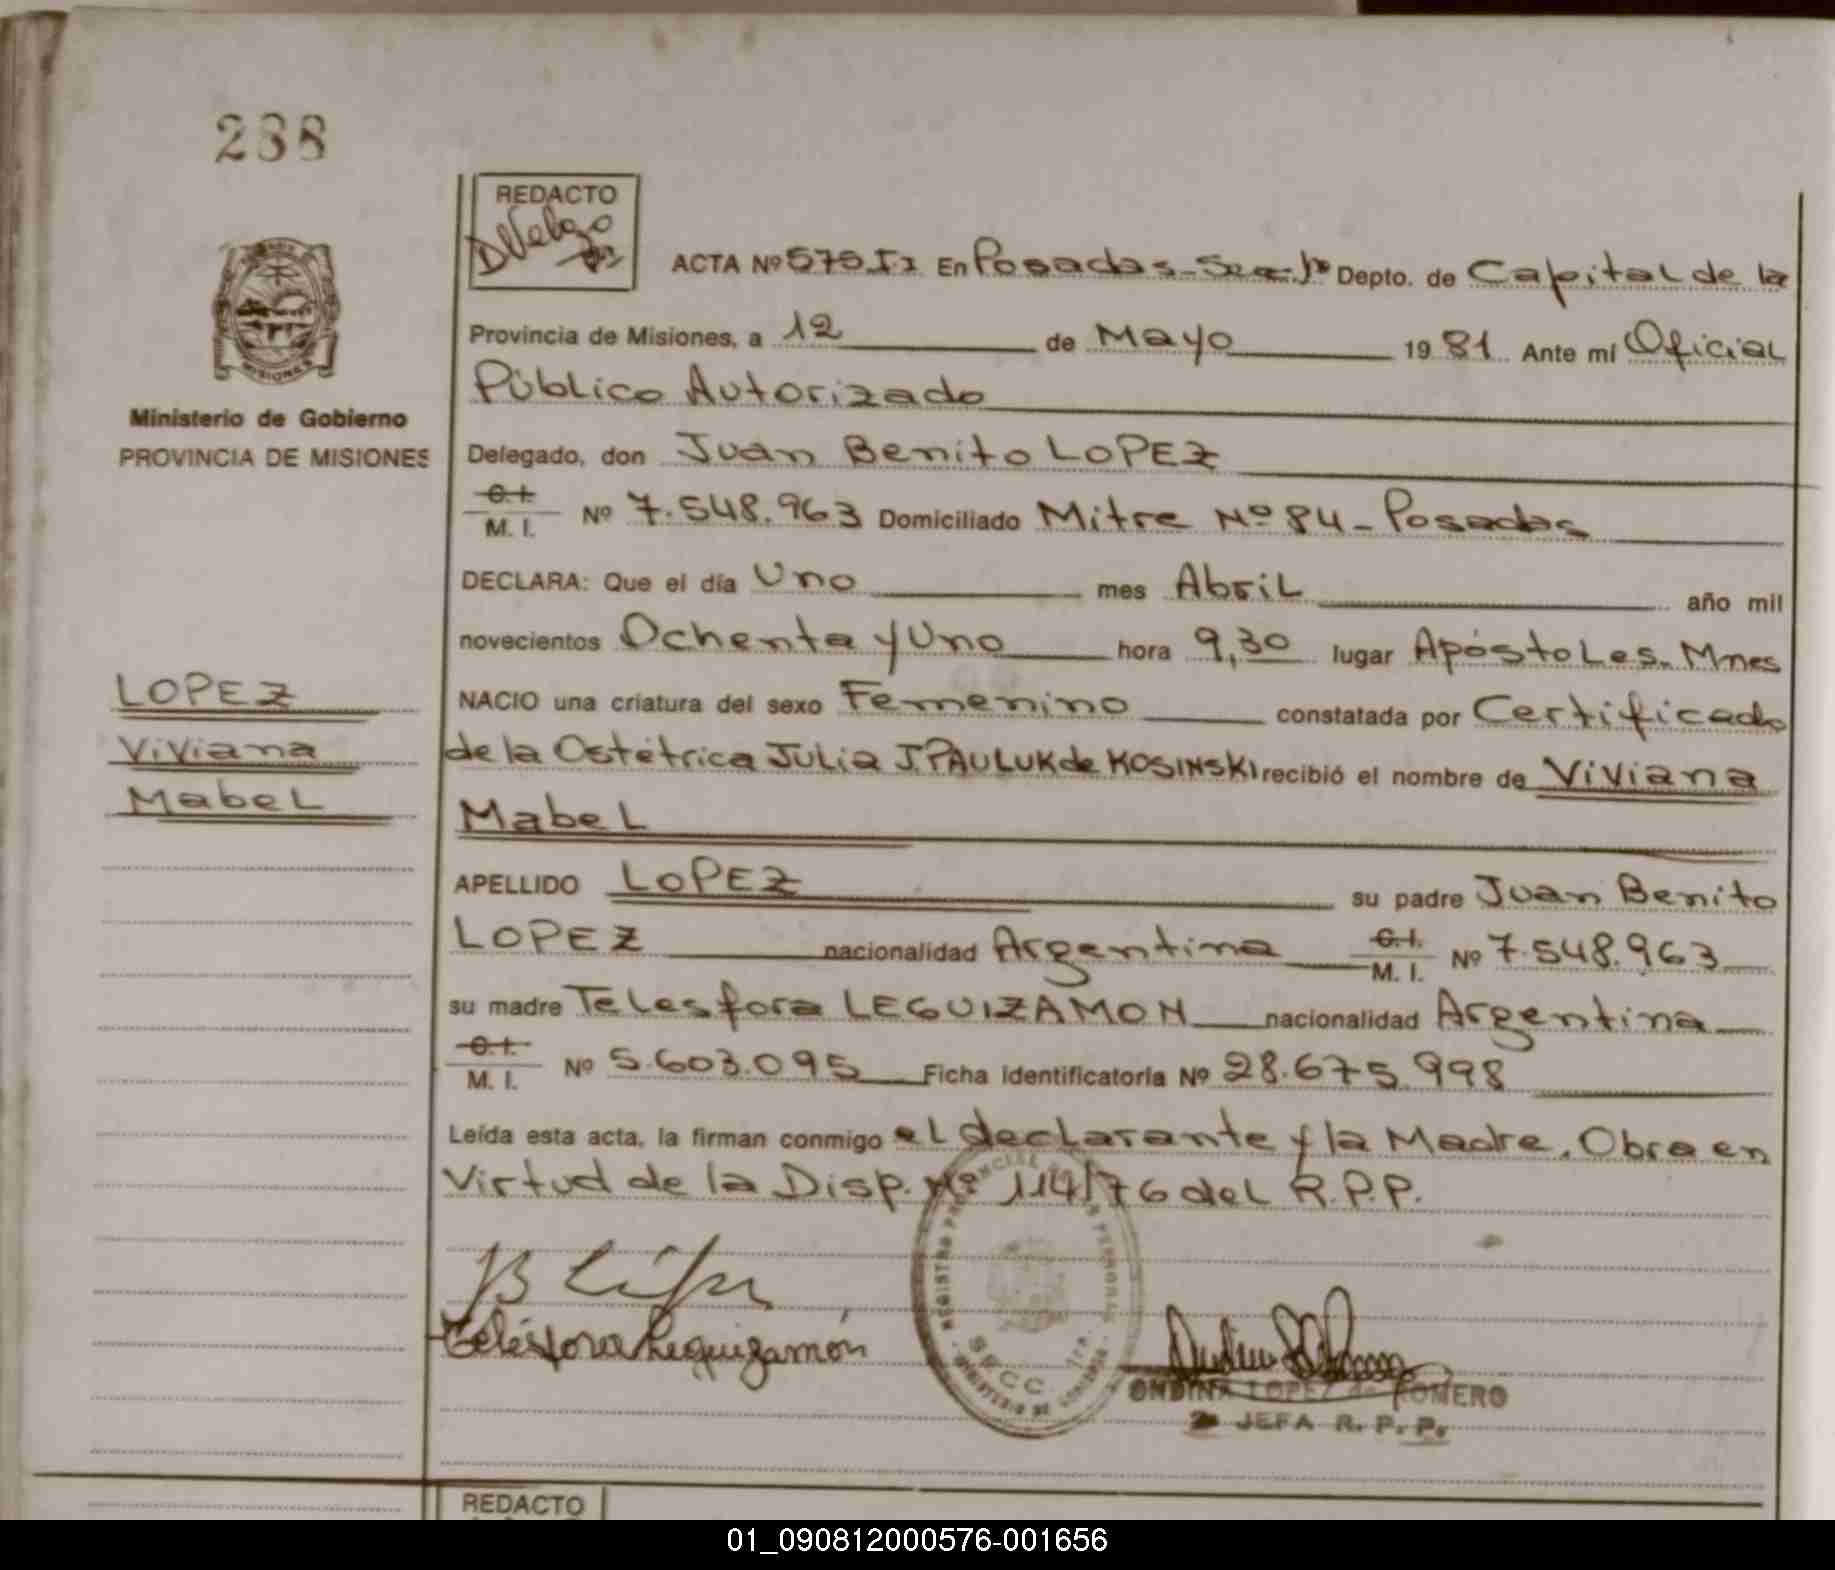 238
REDACTO
ACTA Nº 575 En Posadas - Depto. de Capital de la
Provincia de Misiones, a 12 de Mayo 1981 Ante mí Oficial
Público Autorizado
MISIONES
Ministerio de Gobierno
PROVINCIA DE MISIONES
Delegado, don Juan Benito LOPEZ
C.I.
M. I. Nº 7.548.963 Domiciliado Mitre Nº 84 - Posadas
DECLARA: Que el día Uno mes Abril año mil
novecientos Ochenta y Uno hora 9,30 lugar Apóstoles. Mnes
LOPEZ
Viviana
Mabel
NACIO una criatura del sexo Femenino constatada por Certificado
de la Ostétrica Julia J. PAULUK de KOSINSKI recibió el nombre de Viviana
Mabel
APELLIDO LOPEZ su padre Juan Benito
LOPEZ nacionalidad Argentina C.I. M. I. Nº 7.548.963
su madre Telesfora LEGUIZAMON nacionalidad Argentina
C.I.
M. I. Nº 5.603.095 Ficha identificatoria Nº 28.675.998
Leída esta acta, la firman conmigo el declarante y la Madre. Obra en
Virtud de la Disp. Nº 114/76 del R.P.P.
Telésfora Leguizamón
ONDINA LOPEZ de ROMERO
2ª JEFA R. P. P.
REDACTO
01_090812000576-001656